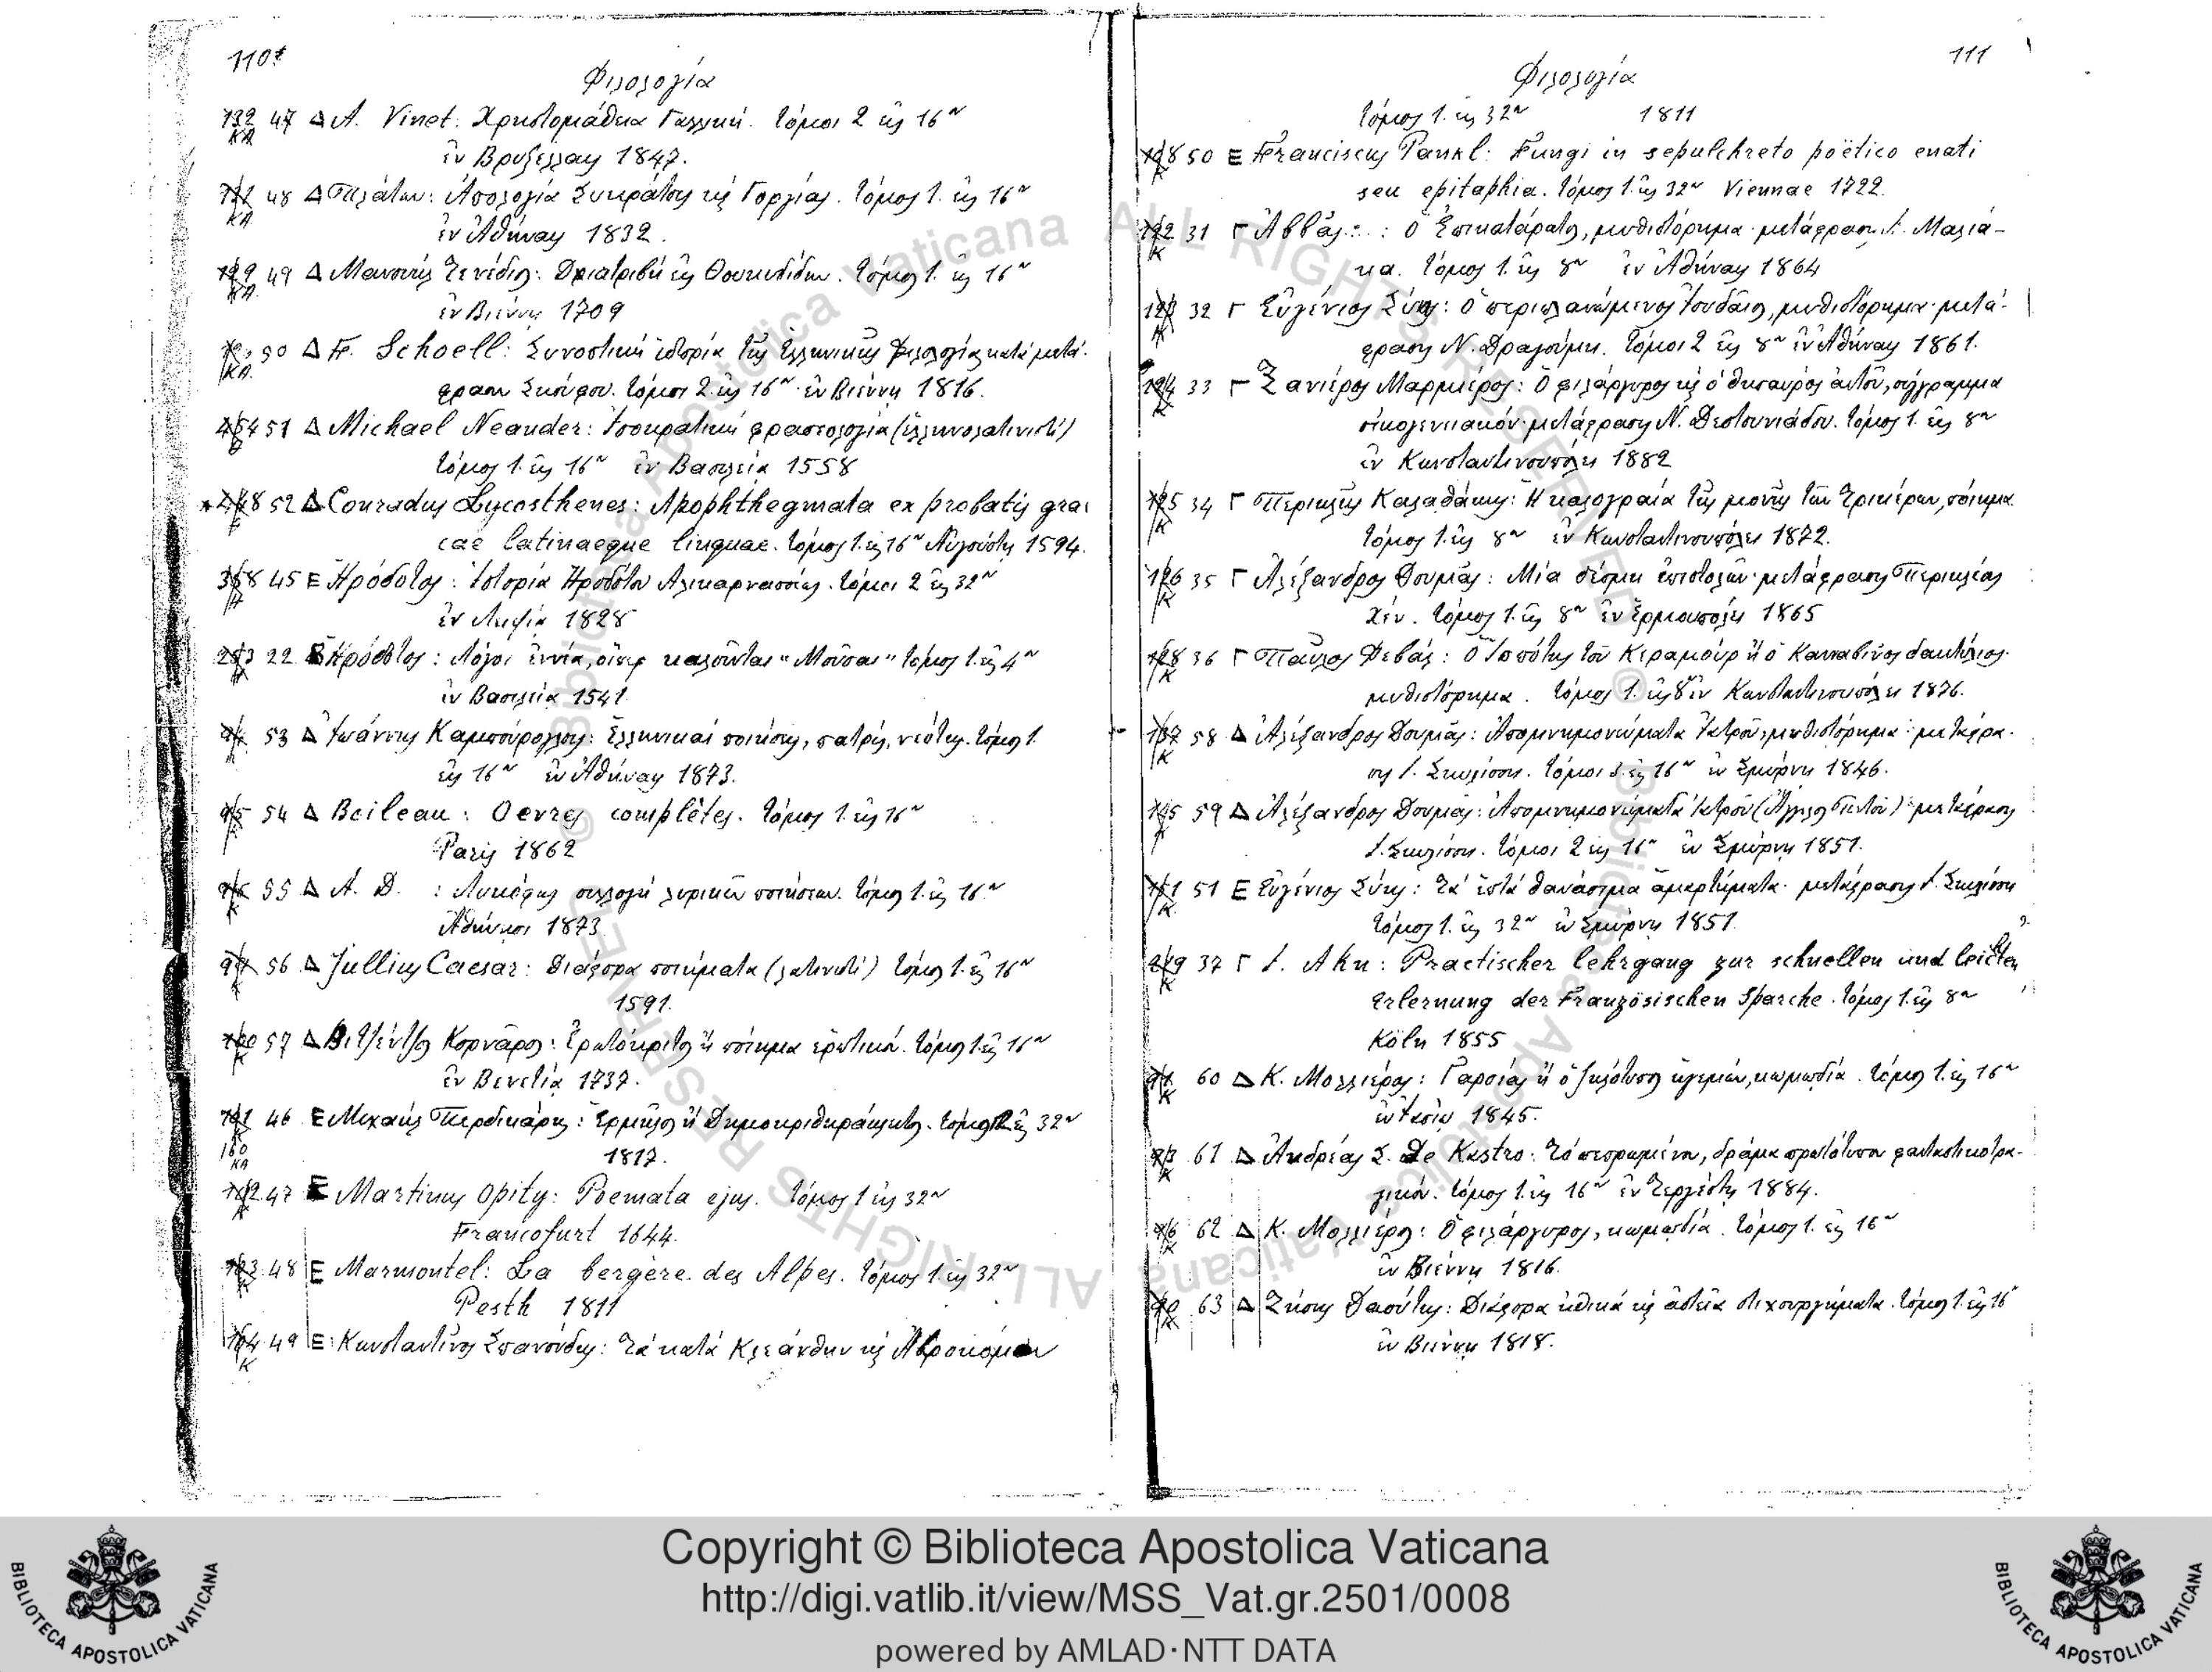 110
Φιλολογία
132 47 Δ A. Vinet: Χρηστομάθεια Γαλλική. τόμοι 2 εἰς 16ον
ΚΑ
ἐν Βρυξέλλαις 1847.
48 Δ Πλάτων: Ἀπολογία Σωκράτους καὶ Γοργίας. τόμος 1. εἰς 16ον
ΚΑ
ἐν Ἀθήναις 1832.
49 Δ Μανουὴλ Τενέδιος: Διατριβὴ εἰς Θουκυδίδην. τόμος 1. εἰς 16ον
ΚΑ.
ἐν Βιέννῃ 1709
50 Δ Fr. Schoell: Συνοπτικὴ ἱστορία τῆς Ἑλληνικῆς φιλολογίας κατὰ μετά-
ΚΑ.
φρασιν Σκούφου. τόμοι 2. εἰς 16ον ἐν Βιέννῃ 1816.
51 Δ Michael Neander: Ἰσοκρατικὴ φρασεολογία (ἑλληνολατινιστὶ)
τόμος 1. εἰς 16ον ἐν Βασιλείᾳ 1558
52 Δ Conradus Lycosthenes: Apophthegmata ex probatis grae
cae latinaeque linguae. τόμος 1. εἰς 16ον Αὐγούστῃ 1594.
45 Ε Ἡρόδοτος: Ἱστορία Ἡροδότου Ἁλικαρνασσέως. τόμοι 2 εἰς 32ον
ἐν Λειψίᾳ 1828
22 Β Ἡρόδοτος: Λόγοι ἐννέα, οἵπερ καλοῦνται "Μοῦσαι" τόμος 1. εἰς 4ον
ἐν Βασιλείᾳ 1541.
53 Δ Ἰωάννης Καμπούρογλους: Ἑλληνικαὶ ποιήσεις, πατρίς, νεότης. τόμος 1.
εἰς 16ον ἐν Ἀθήναις 1873.
54 Δ Boileau: Oevres complêtes. τόμος 1. εἰς 16ον
Paris 1862
55 Δ A. D. : Λυκόφως συλλογὴ λυρικῶν ποιήσεων. τόμος 1. εἰς 16ον
Ἀθήνησι 1873
56 Δ Jullius Caesar: Διάφορα ποιήματα (λατινιστὶ) τόμος 1. εἰς 16ον
1591.
57 Δ Βιτζέντζος Κορνᾶρος: Ἐρωτόκριτος ἢ ποίημα ἐρωτικόν. τόμος 1. εἰς 16ον
ἐν Βενετίᾳ 1737.
46 Ε Μιχαὴλ Περδικάρης: Ἑρμῆλος ἢ Δημοκριθηράκλειτος. τόμος εἰς 32ον
160
ΚΑ
1817.
47 Ε Martinus Opity: Poemata ejus. τόμος 1 εἰς 32ον
Francofurt 1644.
48 Ε Marmontel: La bergère des Alpes. τόμος 1. εἰς 32ον
Pesth 1811
49 Ε Κωνσταντῖνος Σπανούδης: Τὰ κατὰ Κλεάνθην καὶ Ἀβροκόμην
Κ
111
Φιλολογία
τόμος 1. εἰς 32ον 1811
50 Ε Franciscus Pankl: Fungi in sepulchreto poëtico enati
Κ
seu epitaphia. τόμος 1. εἰς 32ον Viennae 1722.
31 Γ Ἀββᾶς . . . : Ὁ Ἐπικατάρατος, μυθιστόρημα μετάφρασις Μαλιά-
Κ
κα. τόμος 1. εἰς 8ον ἐν Ἀθήναις 1864
32 Γ Εὐγένιος Σύης: Ὁ περιπλανώμενος Ἰουδαῖος, μυθιστόρημα μετά-
φρασις Ν. Δραγούμη. τόμοι 2 εἰς 8ον ἐν Ἀθήναις 1861.
33 Γ Ξανιέρος Μαρμιέρος: Ὁ φιλάργυρος καὶ ὁ θησαυρὸς αὐτοῦ, σύγγραμμα
οἰκογενειακόν μετάφρασις Ν. Δεστουνιάδου. τόμος 1. εἰς 8ον
ἐν Κωνσταντινουπόλει 1882
34 Γ Περικλῆς Καλαθάκης: Ἡ καλογραία τῆς μονῆς τῶν Τρικέρων, ποίημα
Κ
τόμος 1. εἰς 8ον ἐν Κωνσταντινουπόλει 1872.
35 Γ Ἀλέξανδρος Δουμᾶς: Μία δέσμη ἐπιστολῶν μετάφρασις Περικλέους
Κ
Χέν. τόμος 1. εἰς 8ον ἐν Ἑρμουπόλει 1865
36 Γ Παῦλος Φεβάλ: Ὁ Ἱππότης τοῦ Κεραμούρ ἢ ὁ Κανναβινος δακτύλιος
Κ
μυθιστόρημα. τόμος 1. εἰς 8ον ἐν Κωνσταντινουπόλει 1876.
58 Δ Ἀλέξανδρος Δουμᾶς: Ἀπομνημονεύματα Ἰατροῦ, μυθιστόρημα μετάφρα-
Κ
σις Ι. Σκυλίσση. τόμοι εἰς 16ον ἐν Σμύρνῃ 1846.
59 Δ Ἀλέξανδρος Δουμᾶς: Ἀπομνημονεύματα Ἰατροῦ (Ἄγγελος Πιτοῦ) μετάφρασις
Ι. Σκυλίσση. τόμοι 2 εἰς 16ον ἐν Σμύρνῃ 1851.
51 Ε Εὐγένιος Σύης: Τὰ ἑπτὰ θανάσιμα ἁμαρτήματα μετάφρασις Ι. Σκυλίσση
Κ
τόμος 1. εἰς 32ον ἐν Σμύρνῃ 1851.
37 Γ I. Ahn: Practischer lehrgang zur schnellen und leichten
Κ
Erlernung der Französischen Sparche. τόμος 1. εἰς 8ον
Köln 1855
60 Δ Κ. Μολλιέρος: Γαρσίας ἢ ὁ ζηλότυπος ἡγεμών, κωμωδία. τόμος 1. εἰς 16ον
Κ
ἐν Ἰασίῳ 1845.
61 Δ Ἀνδρέας Σ. De Kastro: Τὸ πεπρωμένον, δρᾶμα πρωτότυπον φανταστικοτρα-
Κ
γικόν. τόμος 1. εἰς 16ον ἐν Τεργέστῃ 1884.
62 Δ Κ. Μολλιέρος: Ὁ φιλάργυρος, κωμωδία. τόμος 1. εἰς 16ον
Κ
ἐν Βιέννῃ 1816.
63 Δ Ζήσης Δαούτης: Διάφορα ἠθικὰ καὶ ἀστεῖα στιχουργήματα. τόμος 1. εἰς 16ον
Κ
ἐν Βιέννῃ 1818.
© Biblioteca Apostolica Vaticana ALL RIGHTS RESERVED
Copyright © Biblioteca Apostolica Vaticana
http://digi.vatlib.it/view/MSS_Vat.gr.2501/0008
powered by AMLAD·NTT DATA
BIBLIOTECA APOSTOLICA VATICANA
BIBLIOTECA APOSTOLICA VATICANA